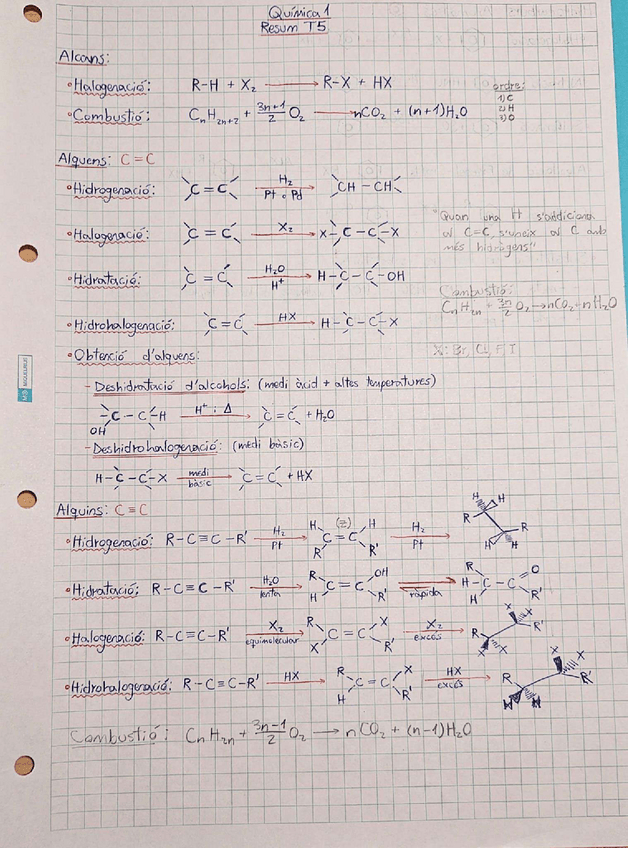 Química 1
Resum T5
Alcans:
• Halogenació: R-H + X₂ → R-X + HX
• Combustió: CₙH₂ₙ₊₂ + 3n+1/2 O₂ → nCO₂ + (n+1)H₂O
ordre:
1) C
2) H
3) O
Alquens: C=C
• Hidrogenació: C=C H₂ Pt o Pd → CH-CH
• Halogenació: C=C X₂ → X-C-C-X
"Quan una H s'addiciona
al C=C, s'uneix al C amb
més hidrògens"
• Hidratació: C=C H₂O H⁺ → H-C-C-OH
Combustió:
CₙH₂ₙ + 3n/2 O₂ → nCO₂ + nH₂O
• Hidrohalogenació: C=C HX → H-C-C-X
X: Br, Cl, F, I
• Obtenció d'alquens:
- Deshidratació d'alcohols: (medi àcid + altes temperatures)
C-C-H OH H⁺ i Δ → C=C + H₂O
- Deshidrohalogenació: (medi bàsic)
H-C-C-X medi bàsic → C=C + HX
Alquins: C≡C
• Hidrogenació: R-C≡C-R' H₂ Pt → H R C=C H R' (z) H₂ Pt → H H R R' H H
• Hidratació: R-C≡C-R' H₂O lenta → R H C=C OH R' ràpida R H-C-C O H R'
• Halogenació: R-C≡C-R' X₂ equimolecular → R X C=C X R' X₂ excés → R X X X X R'
• Hidrohalogenació: R-C≡C-R' HX → R H C=C X R' HX excés → R H H X X R'
Combustió: CₙH₂ₙ + 3n-1/2 O₂ → nCO₂ + (n-1)H₂O